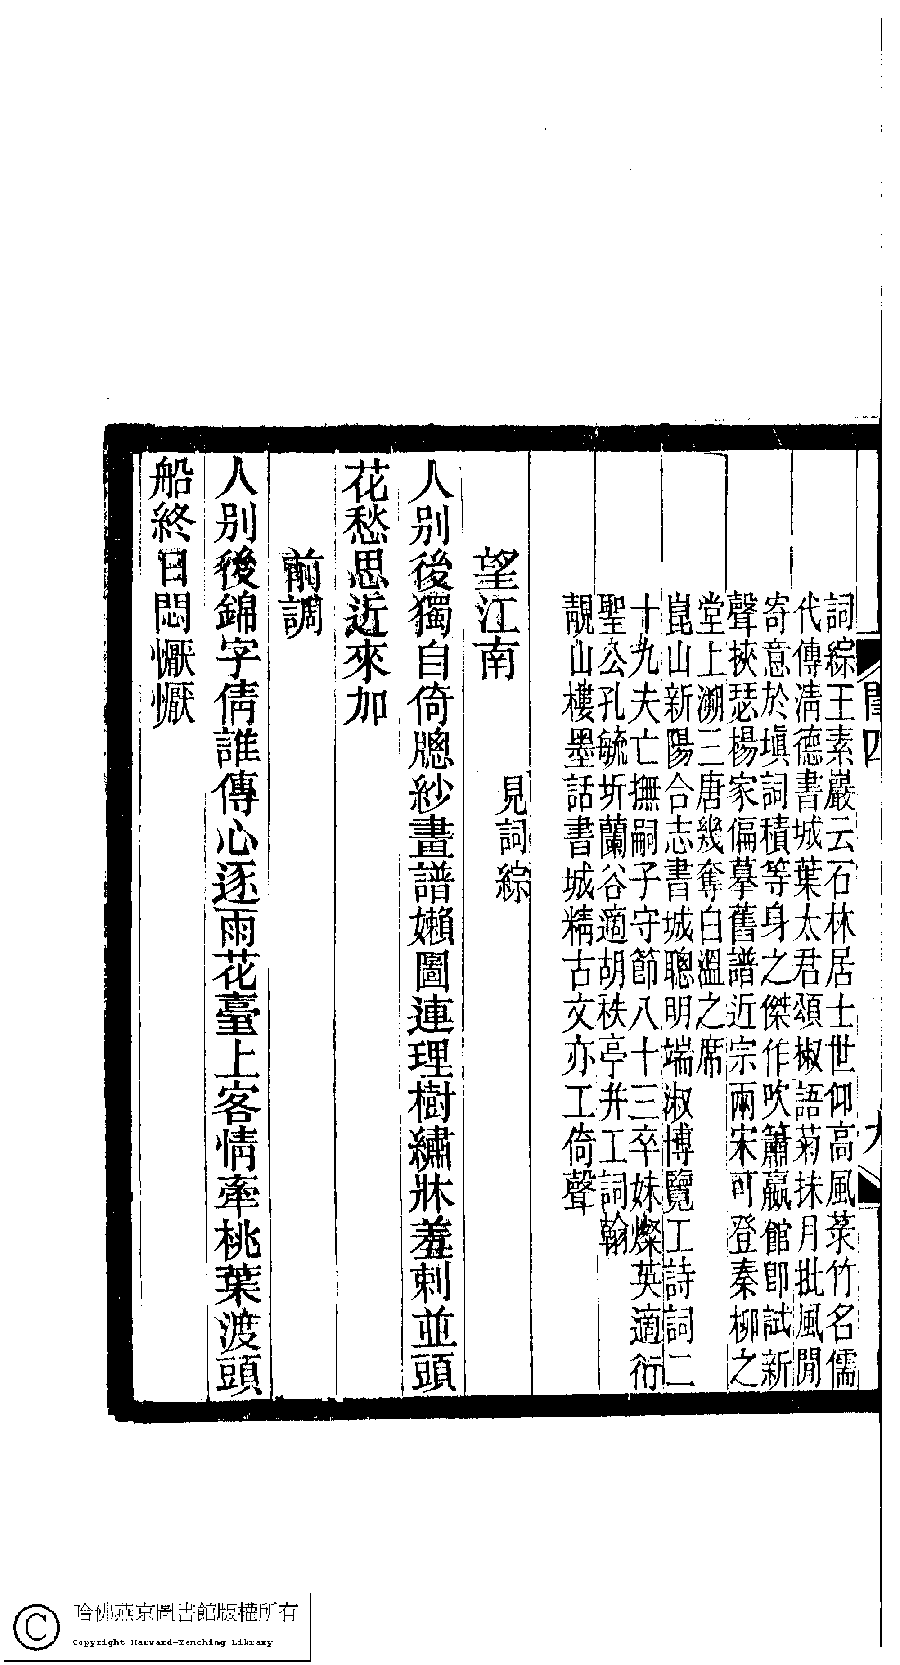 閨四
九
詞綜王素巖云石林居士世仰高風菉竹名儒
代傳淸德書城葉太君頌椒語菊抹月批風閒
寄意於塡詞積等身之傑作吹簫嬴館卽試新
聲挾瑟楊家偏摹舊譜近宗兩宋可登秦柳之
堂上溯三唐幾奪白溫之席
崑山新陽合志書城聰明端淑博覽工詩詞二
十九夫亡撫嗣子守節八十三卒妹燦英適衍
聖公孔毓圻蘭谷適胡秩亭并工詞翰
靚山樓墨話書城精古文亦工倚聲
望江南　見詞綜
人別後獨自倚牕紗畫譜嬾圖連理樹繡牀羞刺並頭
花愁思近來加
前調
人別後錦字倩誰傳心逐雨花臺上客情牽桃葉渡頭
船終日悶懨懨
哈佛燕京圖書館版權所有
Copyright Harvard-Yenching Library